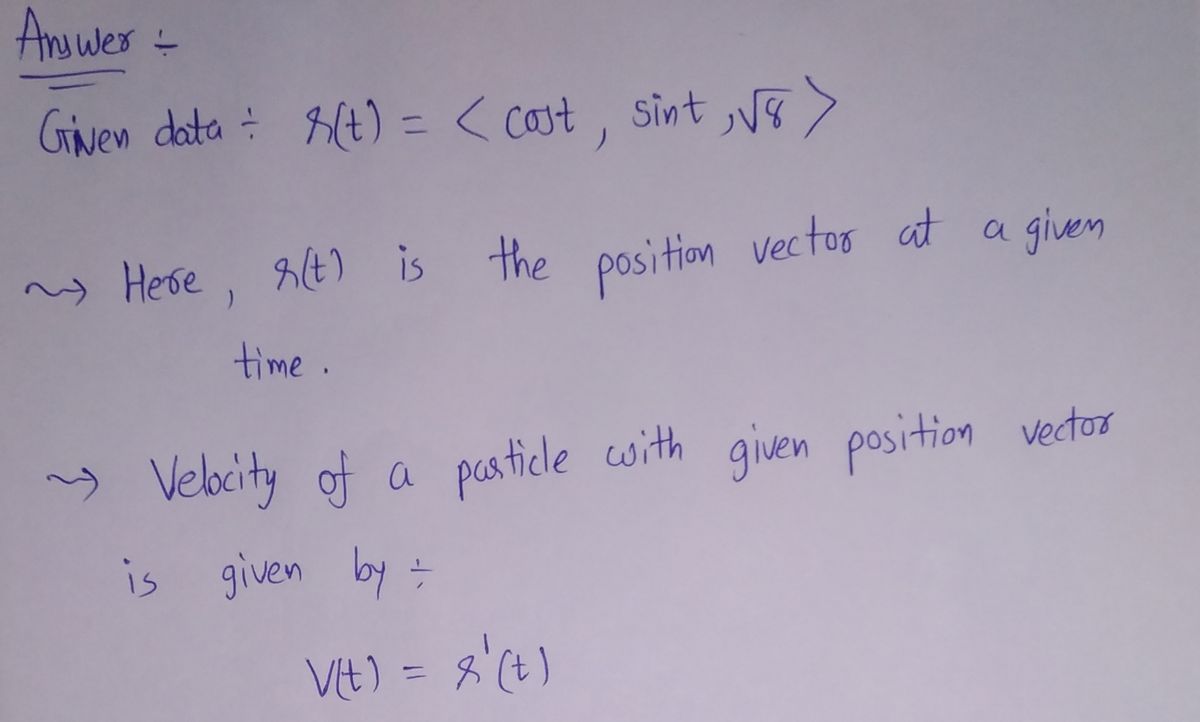 Answer ÷
Given data ÷ r(t) = < cost , sint , √8 >
⇝ Here , r(t) is the position vector at a given
time .
⇝ Velocity of a particle with given position vector
is given by ÷
V(t) = r'(t)